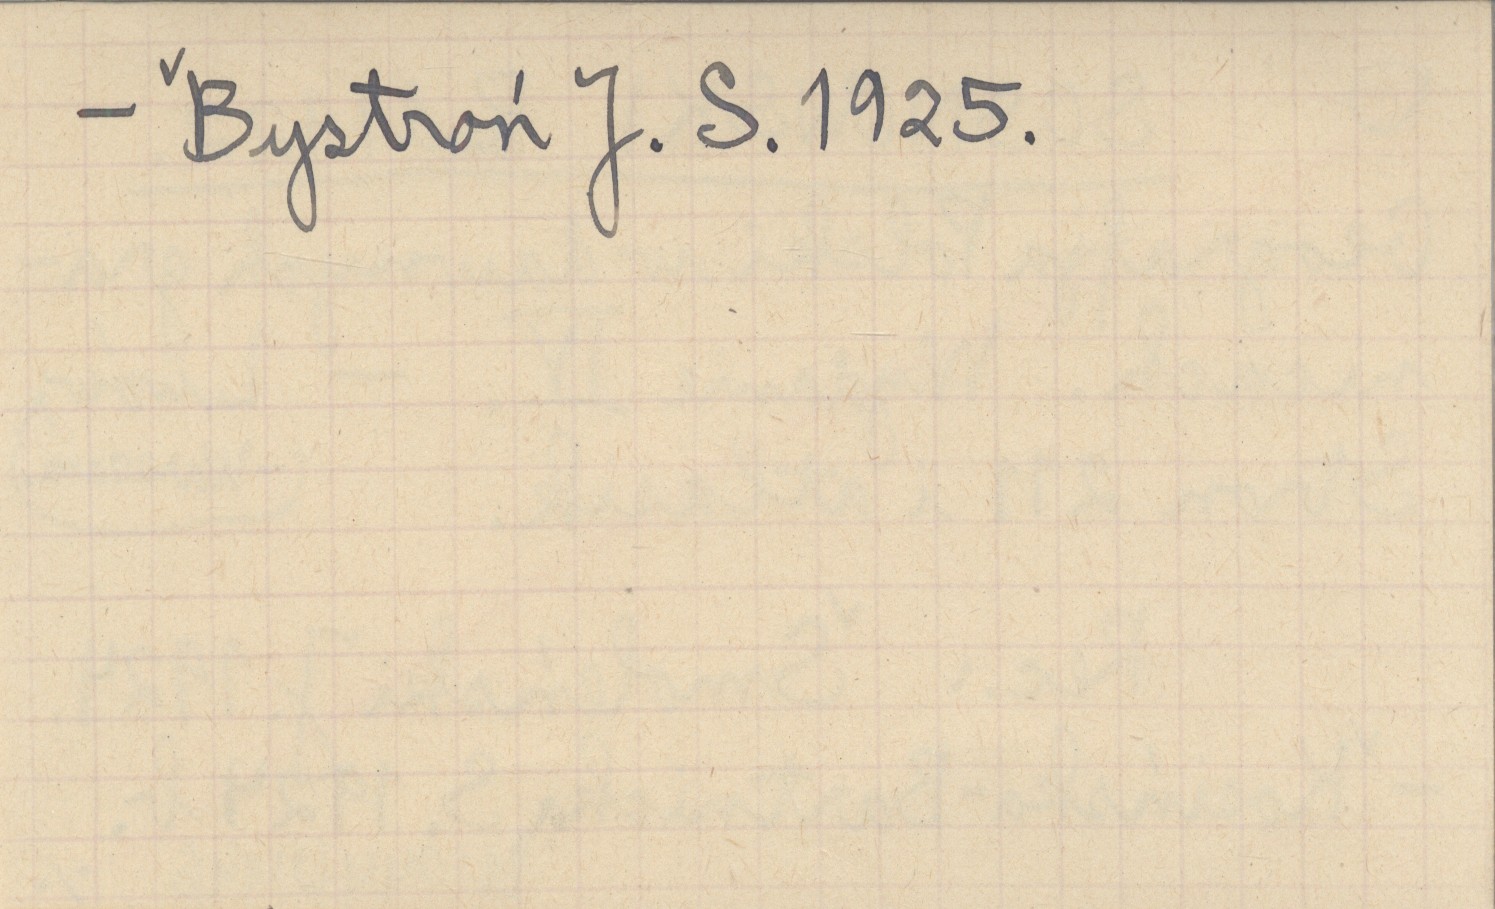 – ✓Bystroń J. S. 1925.